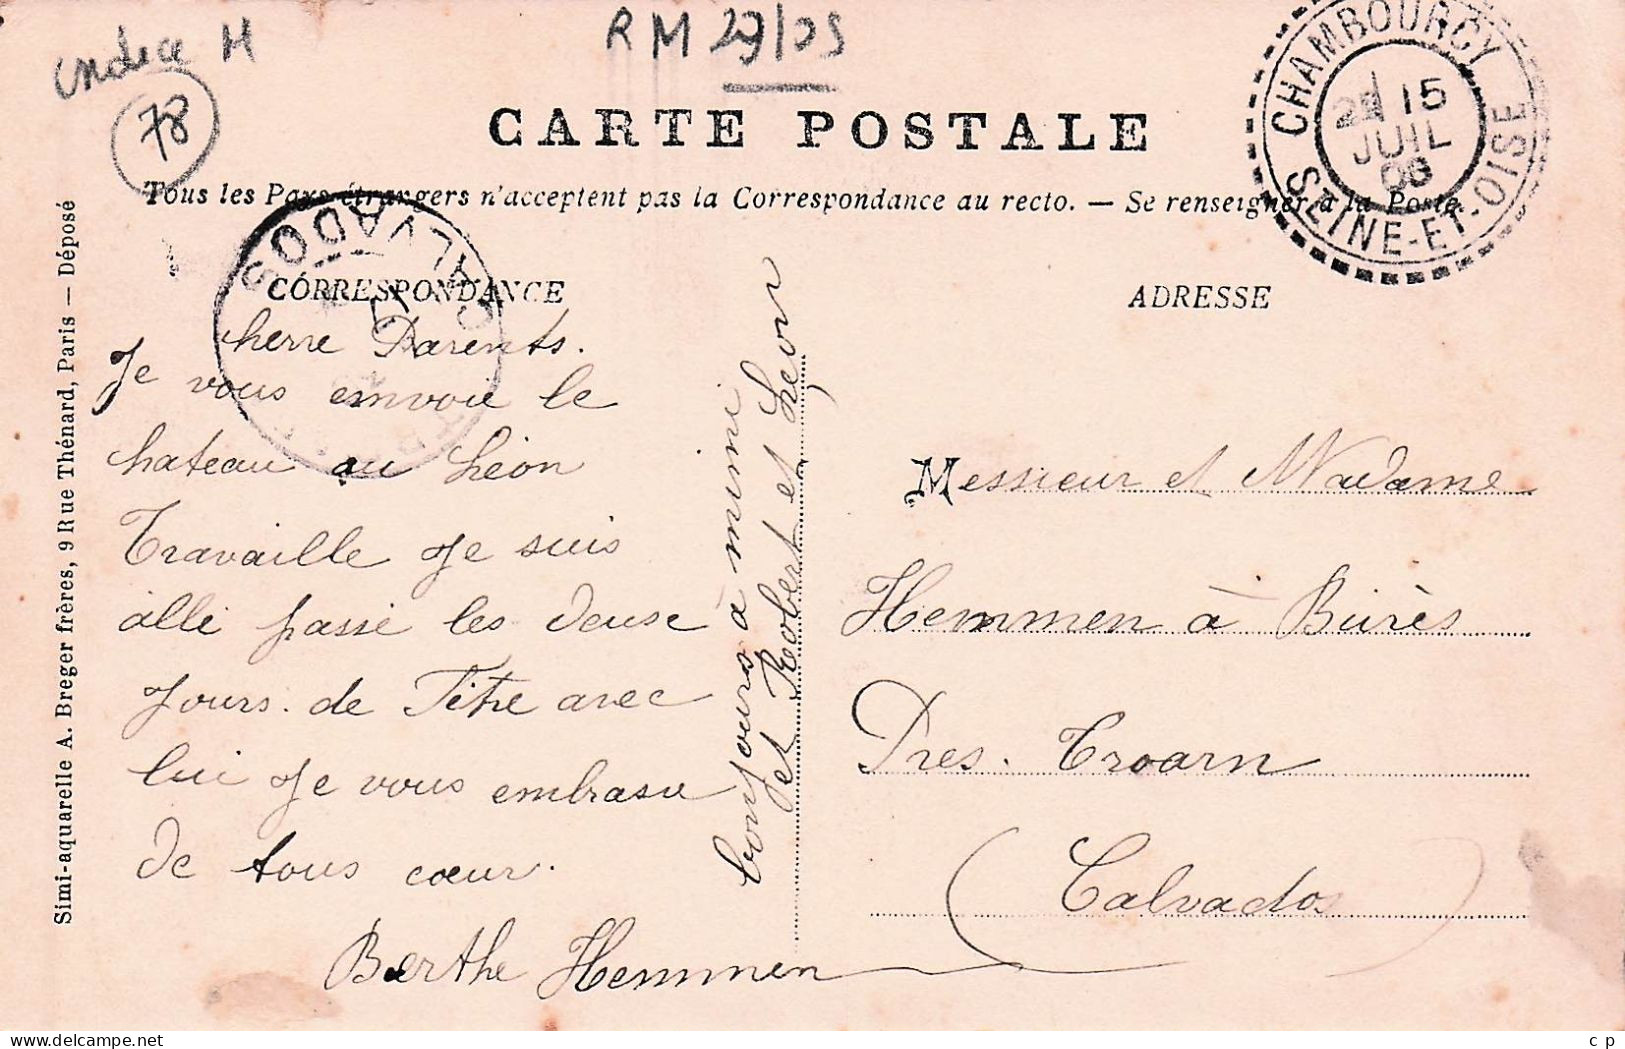 indice H
78
RM 29/05
CARTE POSTALE
Tous les Pays étrangers n'acceptent pas la Correspondance au recto. — Se renseigner à la Poste.
CHAMBOURCY
15
JUIL
SEINE-ET-OISE
CALVADOS
CORRESPONDANCE
ADRESSE
Simi-aquarelle A. Breger frères, 9 Rue Thénard, Paris — Déposé
cherre Parents.
Je vous envoie le
chateau au Léon
Travaille Je suis
allé passé les deuse
Jours. de Fête avec
lui Je vous embrasse
de tous cœur.
Berthe Hemmen
bonjours a mimi
et Robert et Léon
Messieur et Madame
Hemmen à Burès
Pres. Troarn
(Calvados)
c p